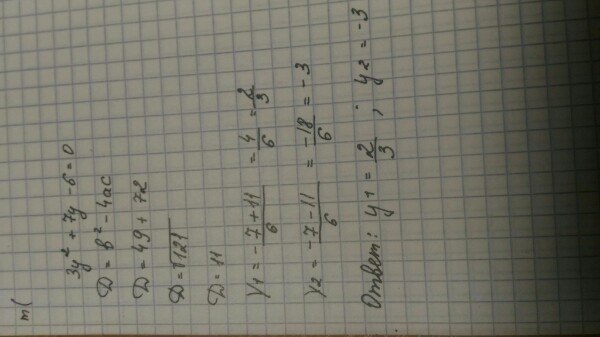 m(
3y² + 7y - 6 = 0
D = b² - 4ac
D = 49 + 72
D = √121
D = 11
y1 = -7+11/6 = 4/6 = 2/3
y2 = -7-11/6 = -18/6 = -3
Ответ: y1 = 2/3 ; y2 = -3